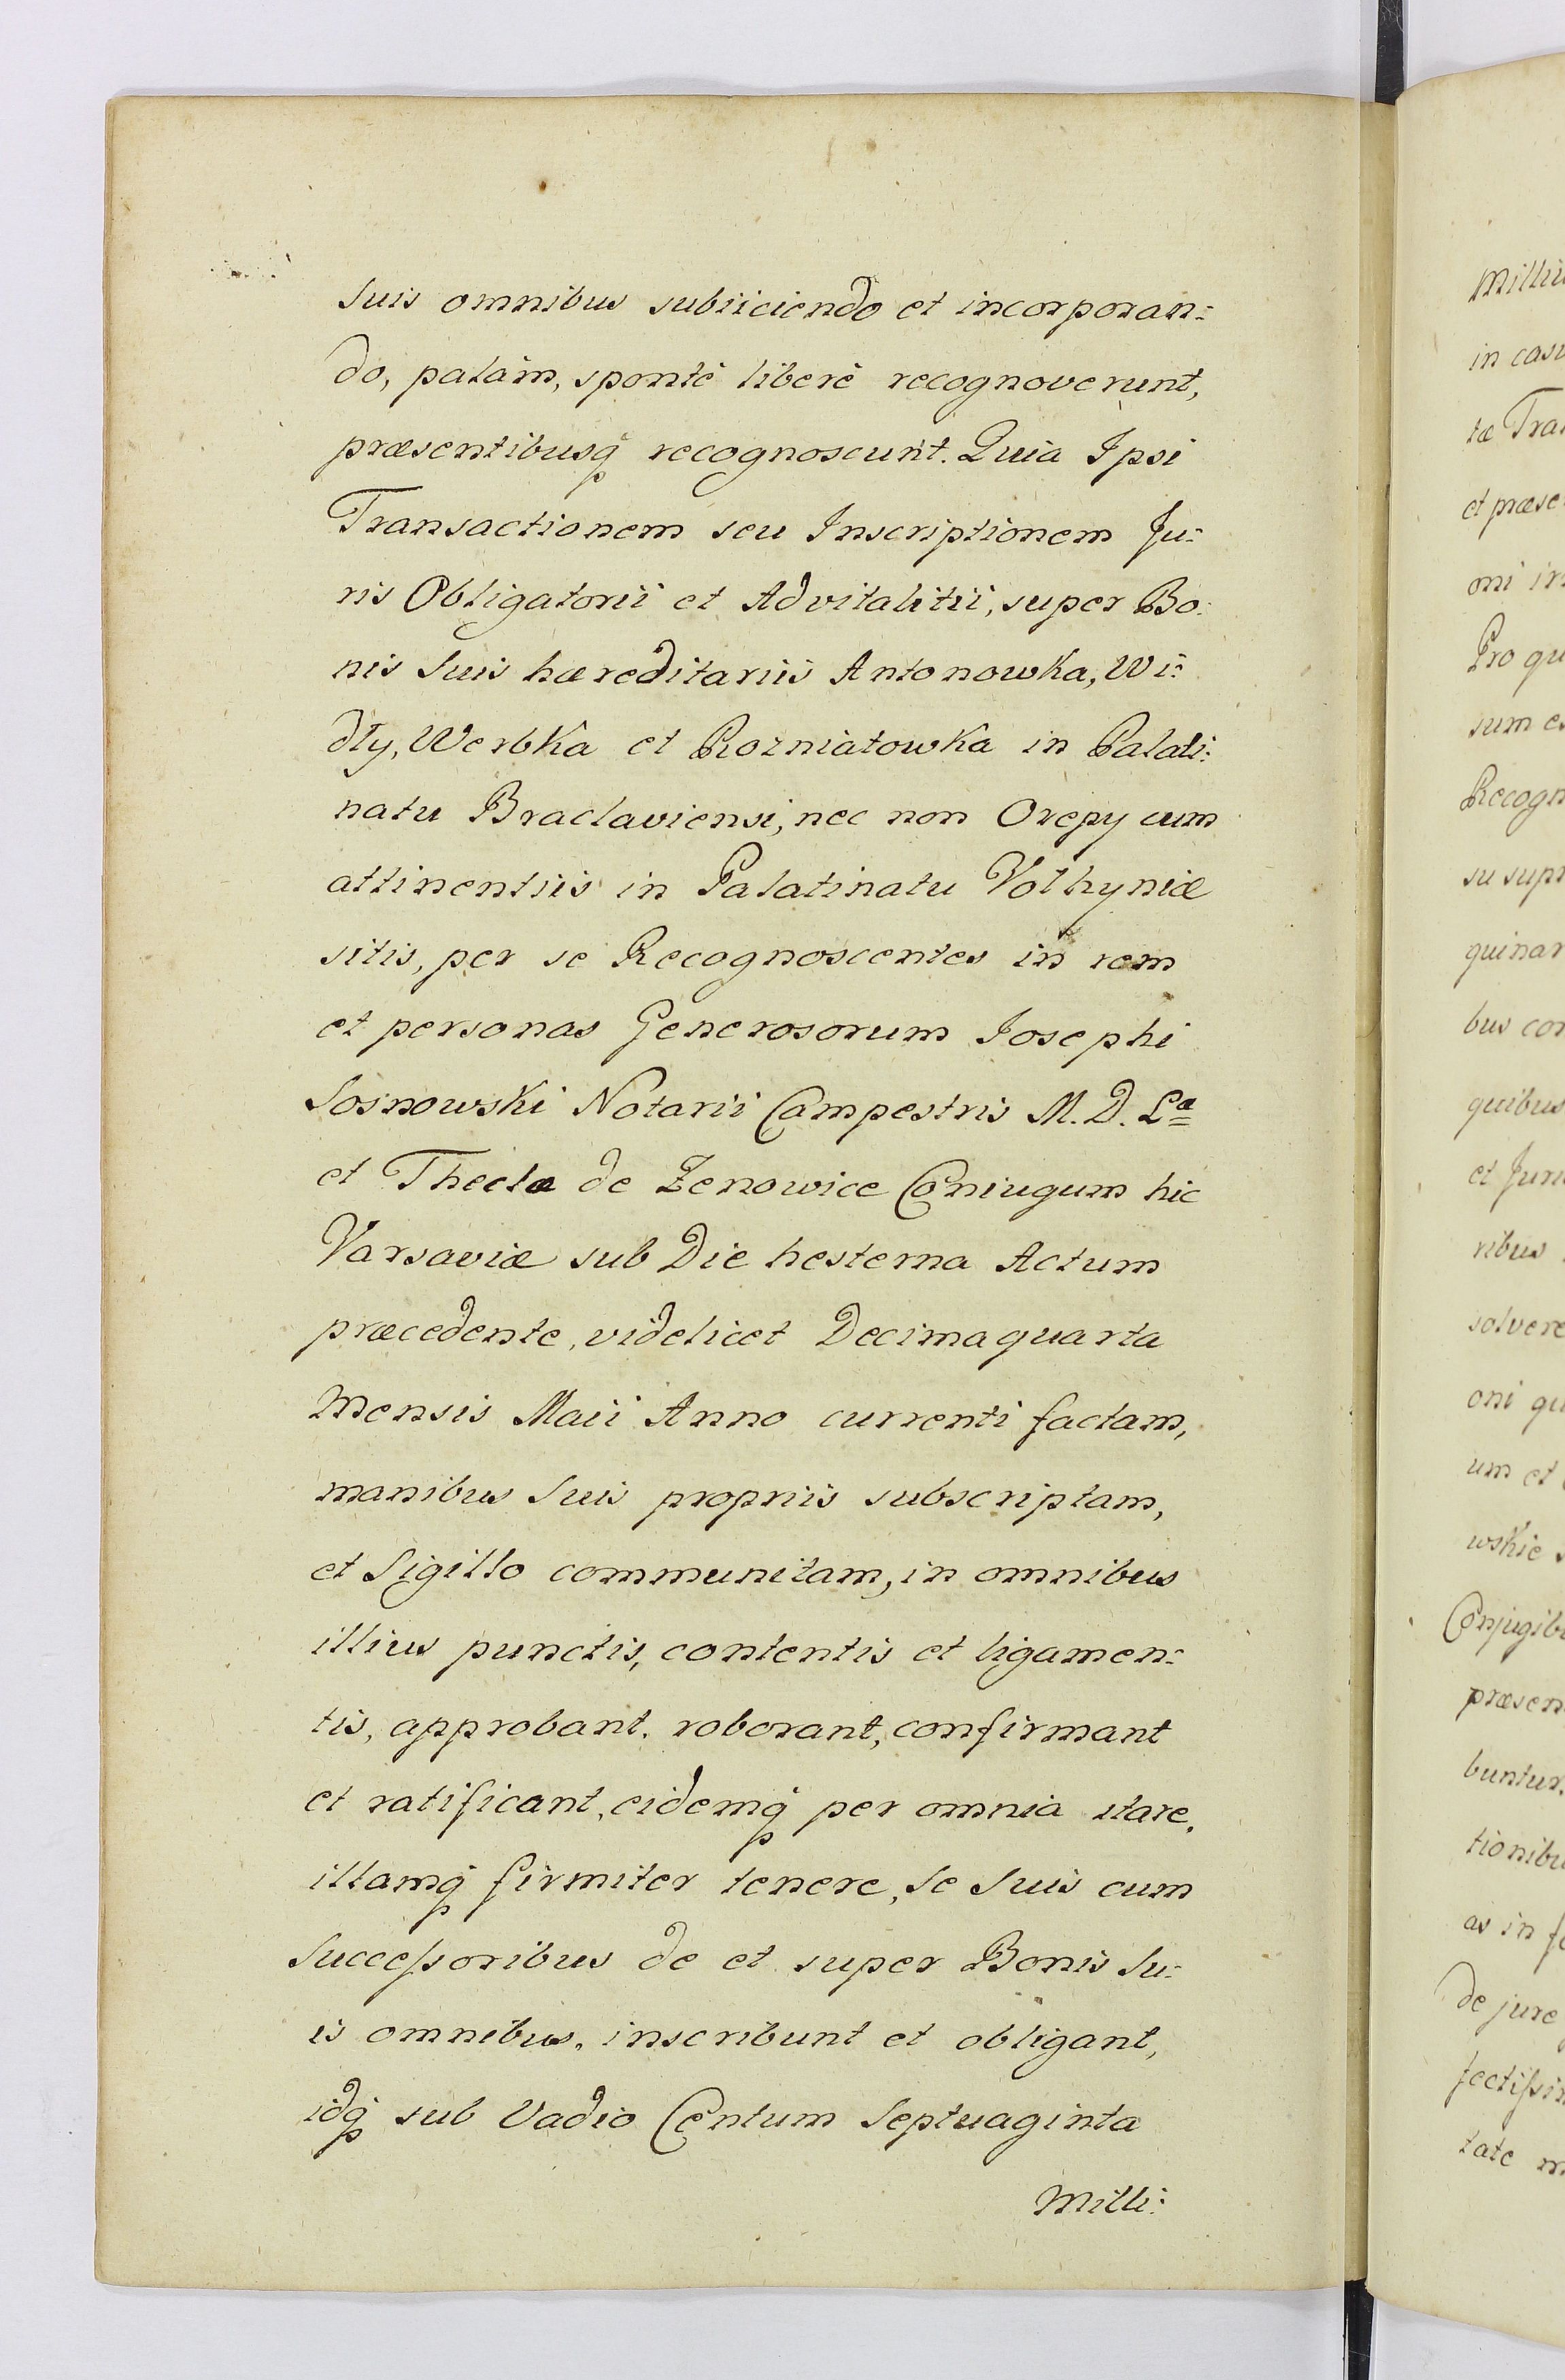 Suis omnibus subiiciendo et incorporan:
do, palàm, spontè liberè recognoverunt,
præsentibusq́ recognoscunt. Quia Ipsi
Transactionem seu Inscriptionem Ju:
ris Obligatorii et Advitalitii, super Bo:
nis Suis hæreditariis Antonowka, Wi:
dły, Werbka et Rozniatowka in Palati:
natu Braclaviensi, nec non Orepy cum
attinentiis in Palatinatu Volhyniæ
sitis, per se Recognoscentes in rem
et personas Generosorum Josephi
Sosnowski Notarii Campestris M. D. Lᵃ
et Theclæ de Zenowicz Coniugum hic
Varsaviæ sub Die hesterna Actum
præcedente, videlicet Decimaquarta
Mensis Maii Anno currenti factam,
manibus Suis propriis subscriptam,
et Sigillo communitam, in omnibus
illius punctis, contentis et ligamen:
tis, approbant, roborant, confirmant
et ratificant, eidemq́ per omnia stare,
illamq́ firmiter tenere, Se Suis cum
Successoribus de et super Bonis Su:
is omnibus, inscribunt et obligant,
idq́ sub Vadio Centum Septuaginta
Milli:
in
Tra
et
Pro
sum
bus
quibus
et
ribus
solvere
oni
um et
as in
De jure
tate